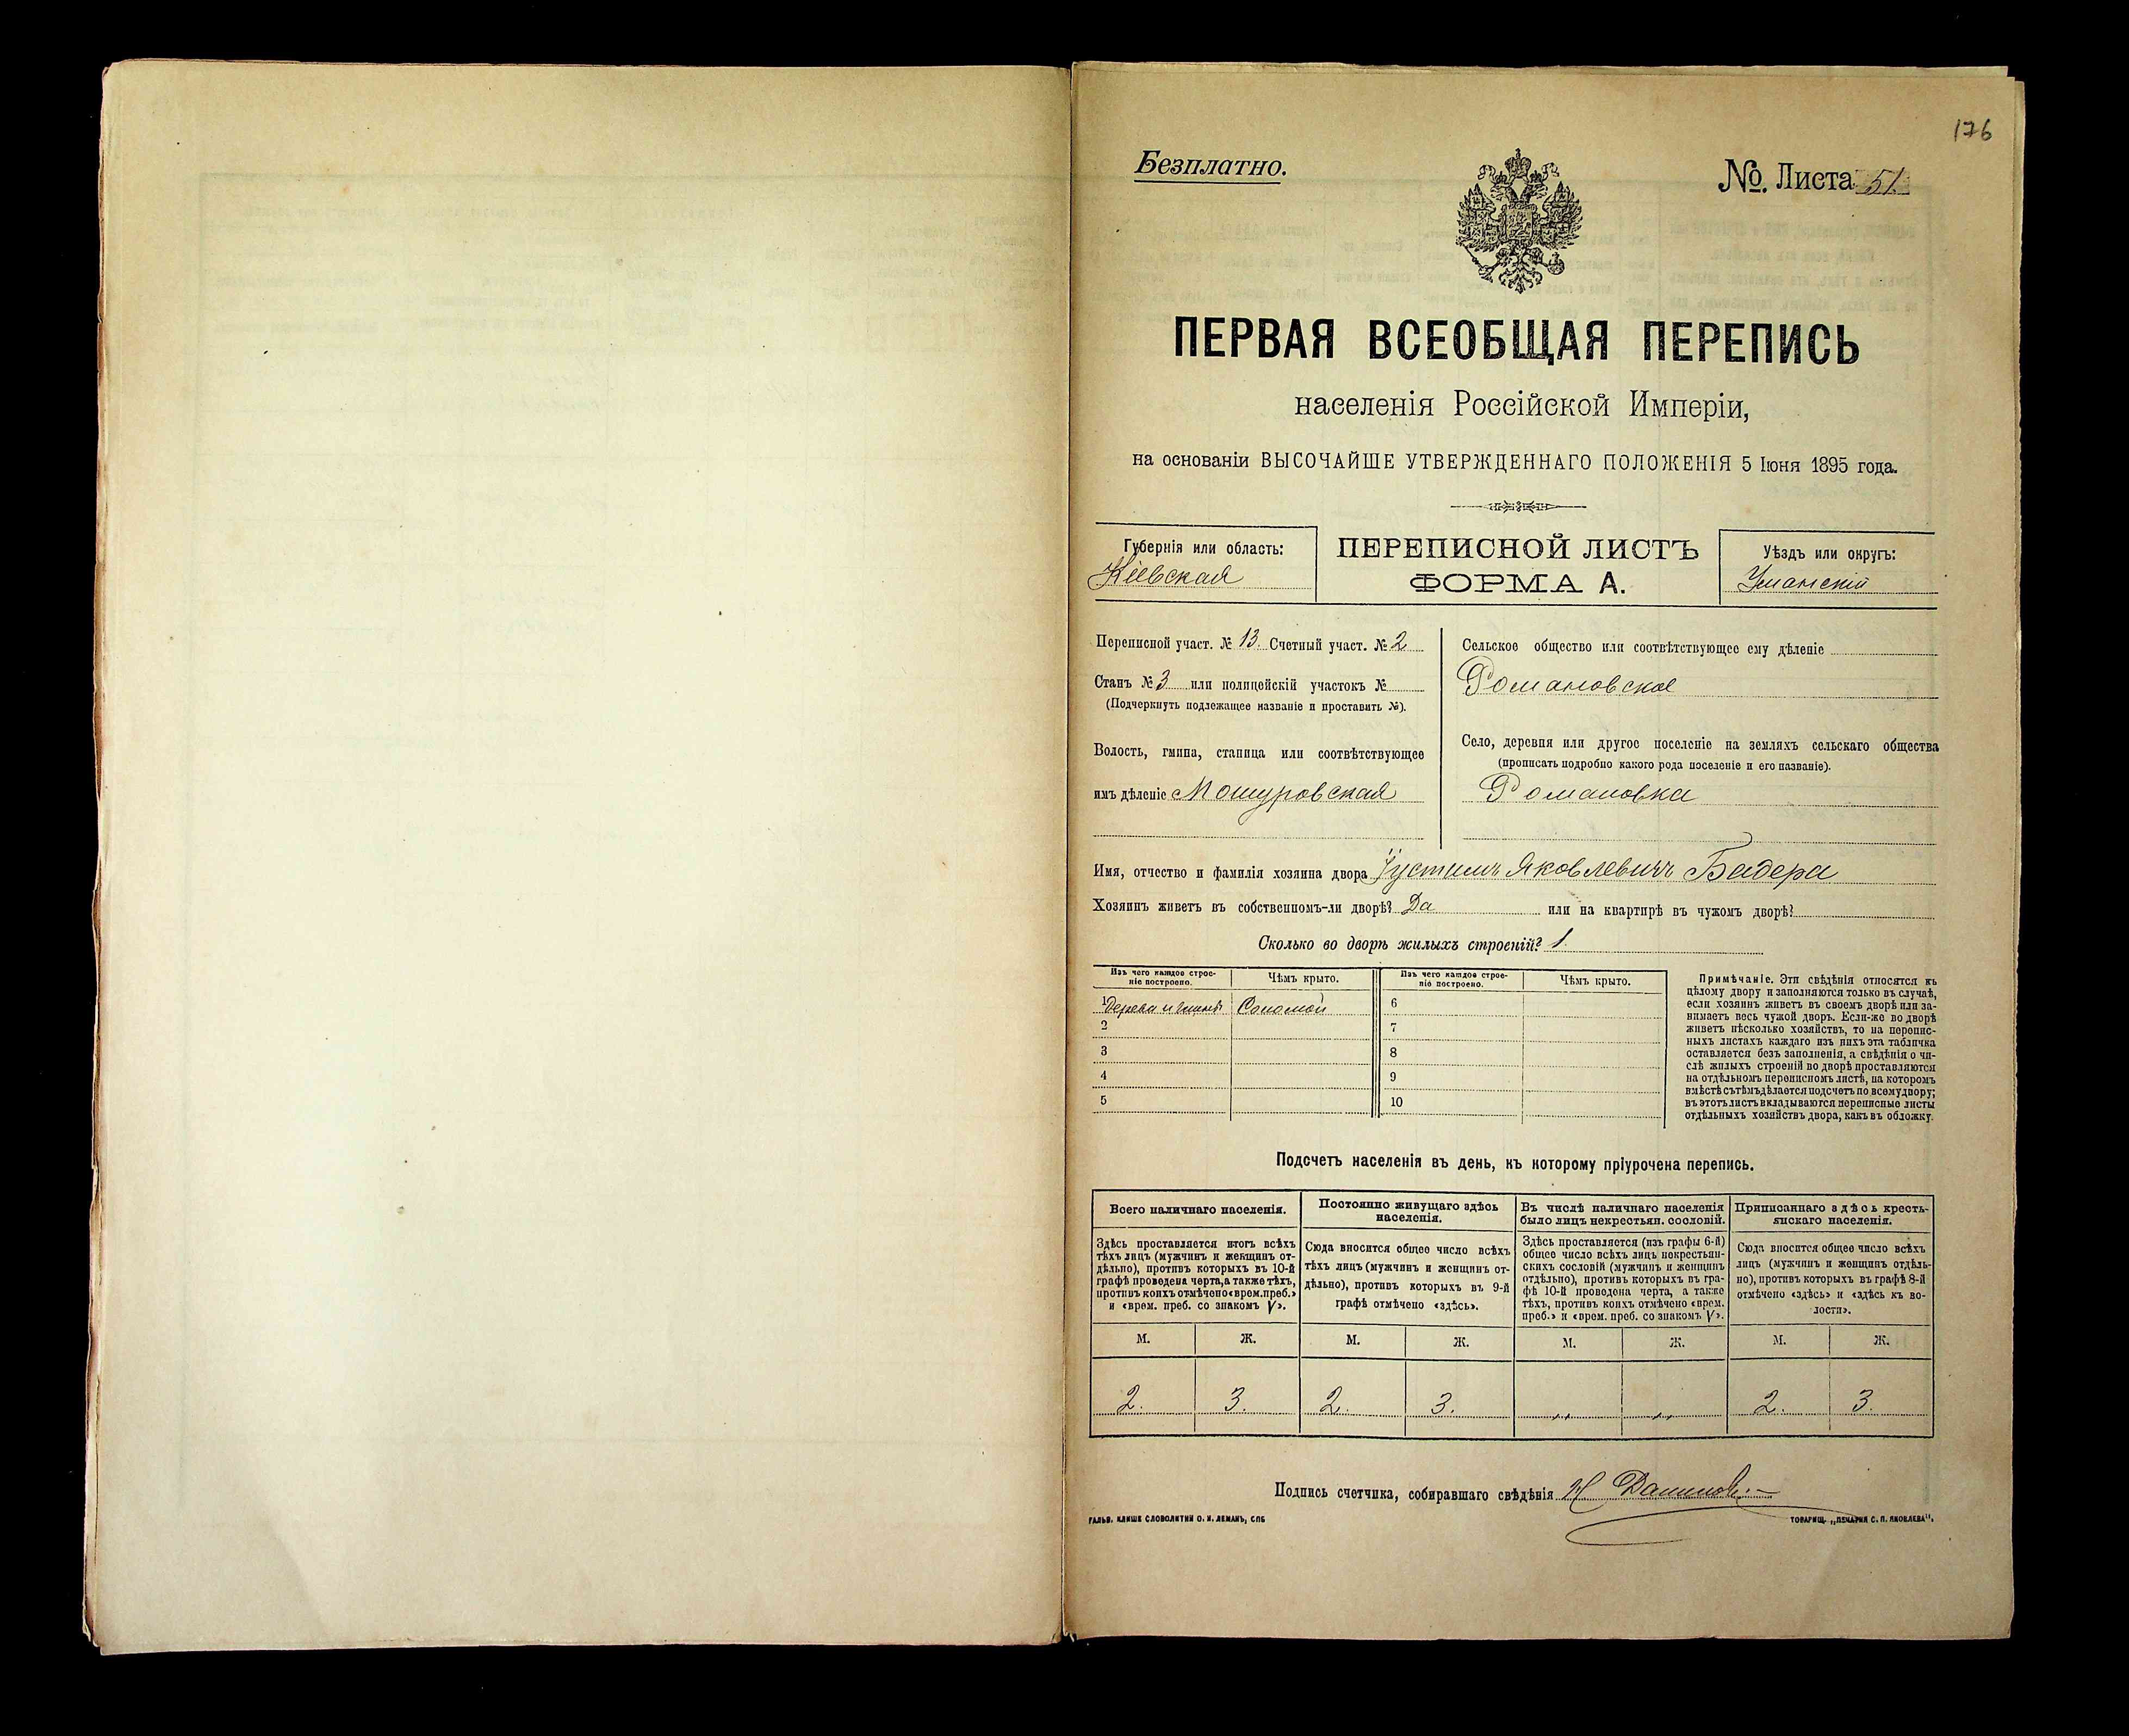 176
Безплатно.
№. Листа 51.
ПЕРВАЯ ВСЕОБЩАЯ ПЕРЕПИСЬ
населенія Россійской Имперіи,
на основаніи ВЫСОЧАЙШЕ УТВЕРЖДЕННАГО ПОЛОЖЕНІЯ 5 Іюня 1895 года.
Губернія или область:
Кіевская
ПЕРЕПИСНОЙ ЛИСТЪ
ФОРМА А.
Уѣздъ или округъ:
Уманскій
Переписной участ. № 13. Счетный участ. № 2
Станъ № 3 или полицейскій участокъ №
(Подчеркнуть подлежащее названіе и проставить №).
Волость, гмина, станица или соотвѣтствующее
имъ дѣленіе Мошуровская
Сельское общество или соотвѣтствующее ему дѣленіе
Романовское
Село, деревня или другое поселеніе на земляхъ сельскаго общества
(прописать подробно какого рода поселеніе и его названіе).
Романовка
Имя, отчество и фамилія хозяина двора Устимъ Яковлевичъ Бадера
Хозяинъ живетъ въ собственномъ-ли дворѣ? Да или на квартирѣ въ чужомъ дворѣ?
Сколько во дворѣ жилыхъ строеній? 1.
Изъ чего каждое строе-
ніе построено.
Чѣмъ крыто.
Изъ чего каждое строе-
ніе построено.
Чѣмъ крыто.
1 Дерева и глины Соломой 6
2 7
3 8
4 9
5 10
Примѣчаніе. Эти свѣдѣнія относятся къ
цѣлому двору и заполняются только въ случаѣ,
если хозяинъ живетъ въ своемъ дворѣ или за-
нимаетъ весь чужой дворъ. Если-же во дворѣ
живетъ нѣсколько хозяйствъ, то на перепис-
ныхъ листахъ каждаго изъ нихъ эта табличка
оставляется безъ заполненія, а свѣдѣнія о чи-
слѣ жилыхъ строеній во дворѣ проставляются
на отдѣльномъ переписномъ листѣ, на которомъ
вмѣстѣ съ тѣмъ дѣлается подсчетъ по всему двору;
въ этотъ листъ вкладываются переписные листы
отдѣльныхъ хозяйствъ двора, какъ въ обложку.
Подсчетъ населенія въ день, къ которому пріурочена перепись.
Всего наличнаго населенія.
Здѣсь проставляется итогъ всѣхъ
тѣхъ лицъ (мужчинъ и женщинъ от-
дѣльно), противъ которыхъ въ 10-й
графѣ проведена черта, а также тѣхъ,
противъ коихъ отмѣчено «врем. преб.»
и «врем. преб. со знакомъ V».
Постоянно живущаго здѣсь
населенія.
Сюда вносится общее число всѣхъ
тѣхъ лицъ (мужчинъ и женщинъ от-
дѣльно), противъ которыхъ въ 9-й
графѣ отмѣчено «здѣсь».
Въ числѣ наличнаго населенія
было лицъ некрестьян. сословій.
Здѣсь проставляется (изъ графы 6-й)
общее число всѣхъ лицъ некрестьян-
скихъ сословій (мужчинъ и женщинъ
отдѣльно), противъ которыхъ въ гра-
фѣ 10-й проведена черта, а также
тѣхъ, противъ коихъ отмѣчено «врем.
преб.» и «врем. преб. со знакомъ V».
Приписаннаго здѣсь кресть-
янскаго населенія.
Сюда вносится общее число всѣхъ
лицъ (мужчинъ и женщинъ отдѣль-
но), противъ которыхъ въ графѣ 8-й
отмѣчено «здѣсь» и «здѣсь къ во-
лости».
М. Ж. М. Ж. М. Ж. М. Ж.
2. 3. 2. 3. „ „ 2. 3.
Подпись счетчика, собиравшаго свѣдѣнія
ГАЛЬВ. КЛИШЕ СЛОВОЛИТНИ О. И. ЛЕМАНЪ, СПБ
ТОВАРИЩ. „ПЕЧАТНЯ С. П. ЯКОВЛЕВА".